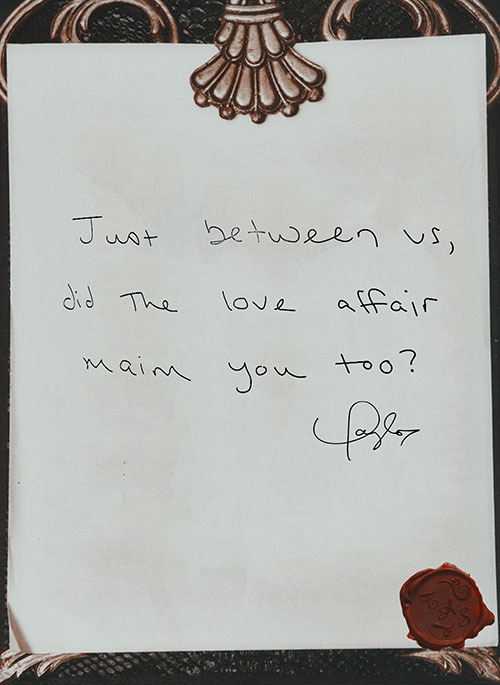 Just between us,
did The love affair
maim you too?
Taylor